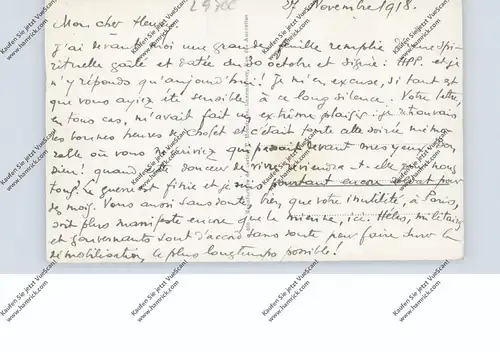 24 Novembre 1918.
Mon cher Henry
J'ai devant moi une grande feuille remplie d'une spi-
rituelle gaîté et datée du 30 octobre et signée : et je
n'y réponds qu'aujourd'hui ! Je m'en excuse, si tant est
que vous ayiez été sensible à ce long silence. Votre lettre,
en tous cas, m'avait fait un extrême plaisir : je retrouvais
les bonnes heures de Cholet et c'était toute la soirée mémo-
rable où vous que passait devant mes yeux. Bon
Dieu ! quand cette douceur de vivre reviendra-t-elle pour nous
tous. La guerre est finie et je suis pourtant encore soldat pour
des mois. Vous aussi sans doute, bien que votre inutilité, à Paris,
soit plus manifeste encore que la mienne, ici. Hélas, militaires
et gouvernants sont d'accord sans doute pour faire durer la
démobilisation le plus longtemps possible !
Kaufen Sie jetzt VueScan!
www.hamrick.com